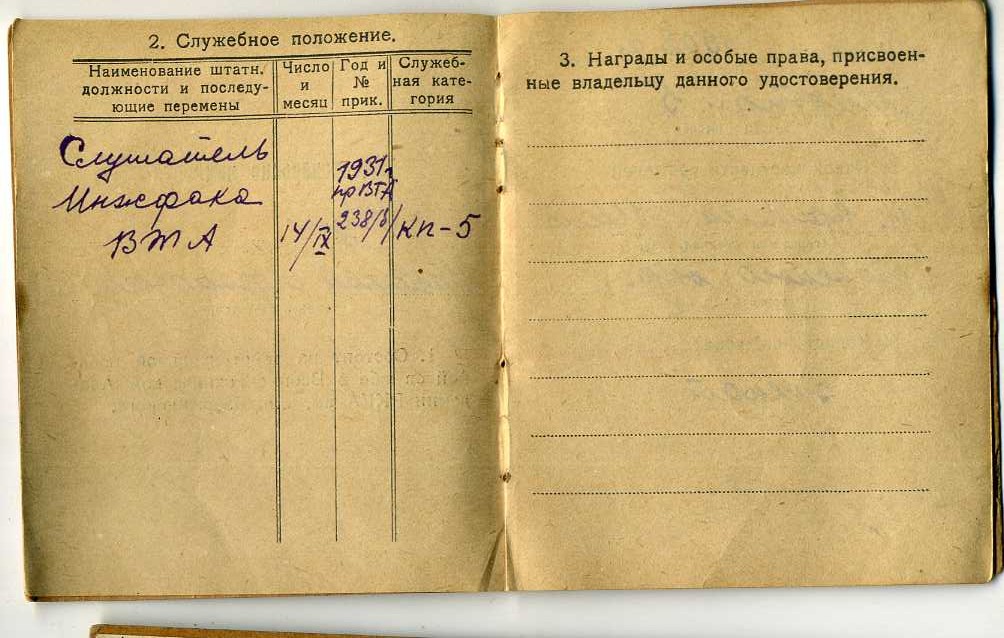 2. Служебное положение.
Наименование штатн. должности и последующие перемены
Число и месяц
Год и № прик.
Служебная категория
Слушатель
Инжфака
ВТА
14/IX
1931г
пр ВТА
238/б
КП-5
3. Награды и особые права, присвоен-
ные владельцу данного удостоверения.